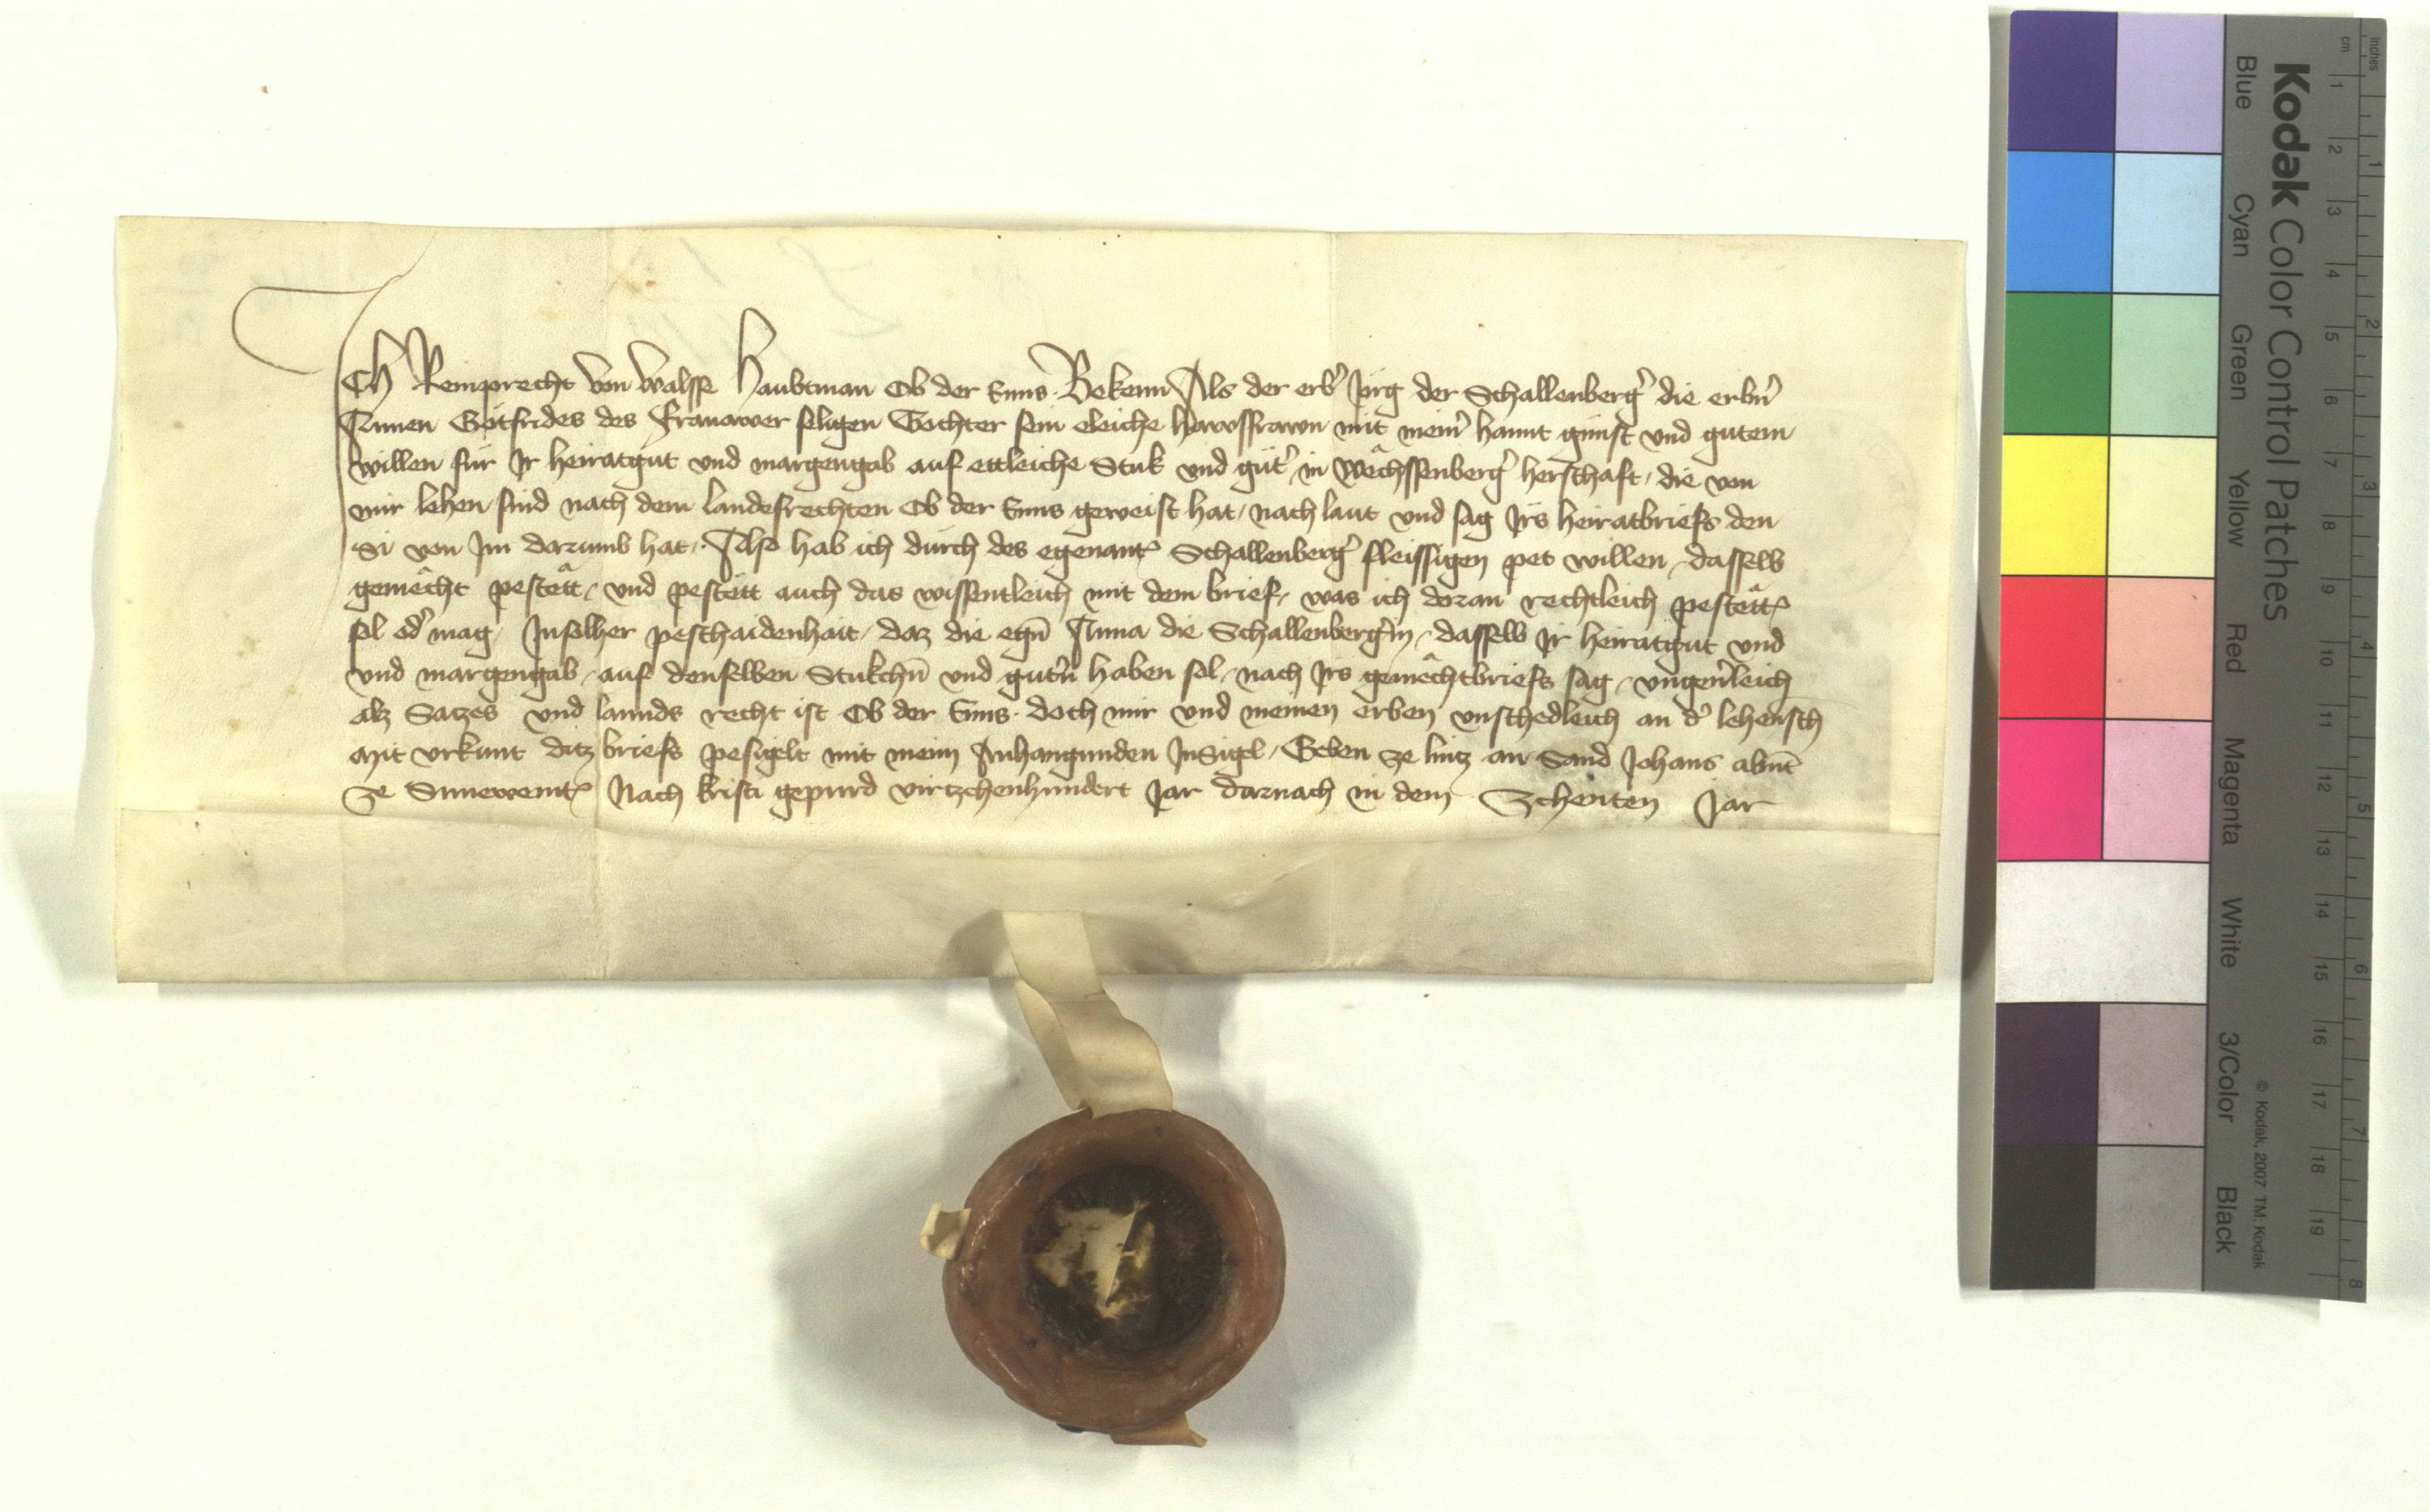 Ich Reinprecht von Walsse Haubtman Ob der Enns Bekenn Als der erbˀ Jörg der Schallenbergˀ die erbnˀ
Annen Götfrides des Franawer seligen Tochter sein eleiche hawsfrawn mit meinˀ hannt gunst und gutem
willen für Jr heiratgut und margengab auf ettleiche Stuk und gütˀ in Wechssenbergˀ herschaft, die von
mir lehen sind nach dem landesrechten Ob der Enns geweist hat, nach laut und sag Jrs heiratbriefs den
Si von Jm darumb hat, Also hab ich durch des egenantˀ Schallenbergˀ fleissigen pet willen, dasselb
gemêcht pestêtt, und pestêtt auch das wissentleich mit dem brief, was ich daran rechtleich pestêttˀ
sol odˀ mag, Jnsolher peschaidenhait, daz die egn̄ Anna die Schallenbergˀin, dasselb Jr heiratgut und
und margengab, auf denselben Stukchn̄ und gutˀn haben sol, nach Jrs gemêchtbriefs sag, vngeuˀleich
alz Satzes und lannds recht ist Ob der Enns. doch mir und meinen erben vnschedleich an dˀ lehensch
Mit vrkunt ditz briefs pesigelt mit meim Anhangunden Jnsigel, Geben ze lintz an Sand Johans abnt̄
ze Sunewentˀ Nach Kristi gepurd virtzehenhundert Jar darnach in dem Zehenten Jar
Kodak Color Control Patches
Blue Cyan Green Yellow Red Magenta White 3/Color Black
© Kodak, 2007 TM: Kodak
inches 1 2 3 4 5 6 7 8
cm 1 2 3 4 5 6 7 8 9 10 11 12 13 14 15 16 17 18 19